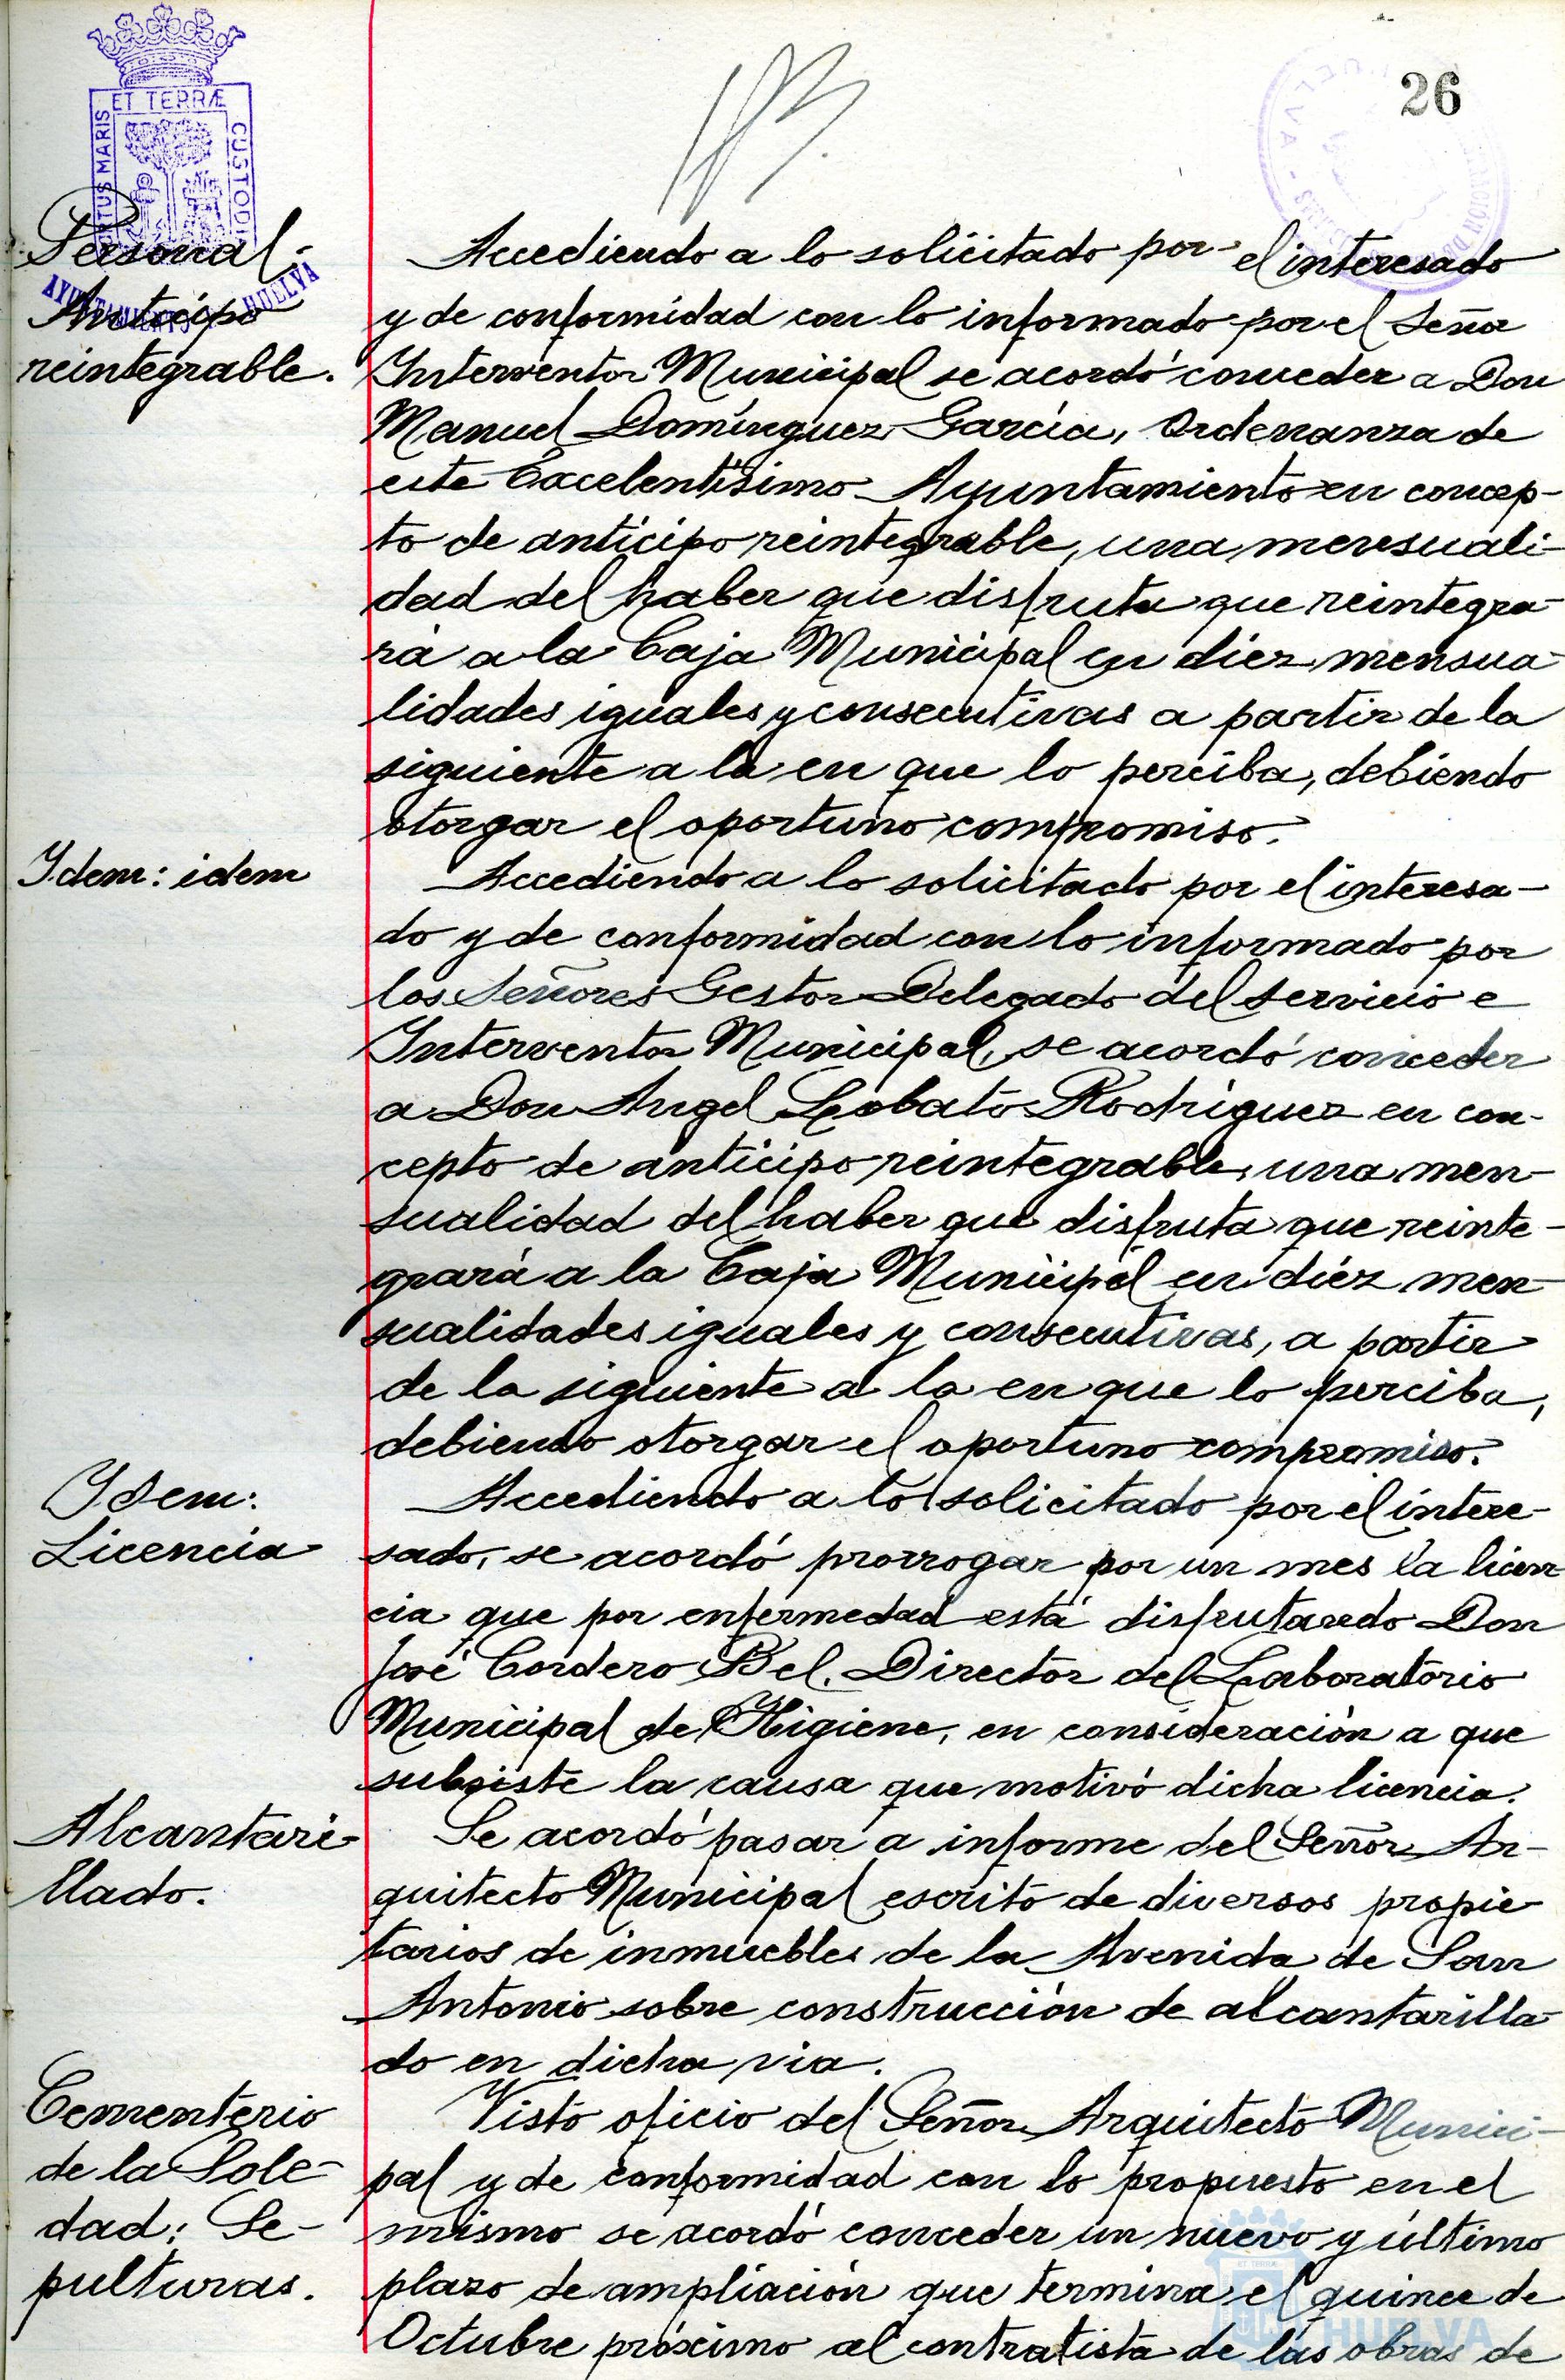 26
ET TERRÆ
PORTUS MARIS
CUSTODIA
AYUNTAMIENTO HUELVA
Personal:
Anticipo
reintegrable.
Accediendo a lo solicitado por el interesado
y de conformidad con lo informado por el Señor
Interventor Municipal se acordó conceder a Don
Manuel Domínguez García, Ordenanza de
este Excelentísimo Ayuntamiento en concep-
to de anticipo reintegrable, una mensuali-
dad del haber que disfruta que reintegra-
rá a la Caja Municipal en diez mensua-
lidades iguales y consecutivas a partir de la
siguiente a la en que lo perciba, debiendo
otorgar el oportuno compromiso.
Idem: idem
Accediendo a lo solicitado por el interesa-
do y de conformidad con lo informado por
los Señores Gestor Delegado del servicio e
Interventor Municipal, se acordó conceder
a Don Angel Lobato Rodríguez en con-
cepto de anticipo reintegrable, una men-
sualidad del haber que disfruta que reinte-
grará a la Caja Municipal en diez men-
sualidades iguales y consecutivas, a partir
de la siguiente a la en que lo perciba,
debiendo otorgar el oportuno compromiso.
Idem:
Licencia
Accediendo a lo solicitado por el intere-
sado, se acordó prorrogar por un mes la licen-
cia que por enfermedad está disfrutando Don
José Cordero Bel. Director del Laboratorio
Municipal de Higiene, en consideración a que
subsiste la causa que motivó dicha licencia.
Alcantari-
llado.
Se acordó pasar a informe del Señor Ar-
quitecto Municipal escrito de diversos propie-
tarios de inmuebles de la Avenida de San
Antonio sobre construcción de alcantarilla-
do en dicha via.
Cementerio
de la Sole-
dad: Se-
pulturas.
Visto oficio del Señor Arquitecto Munici-
pal y de conformidad con lo propuesto en el
mismo se acordó conceder un nuevo y último
plazo de ampliación que termina el quince de
Octubre próximo al contratista de las obras de
HUELVA